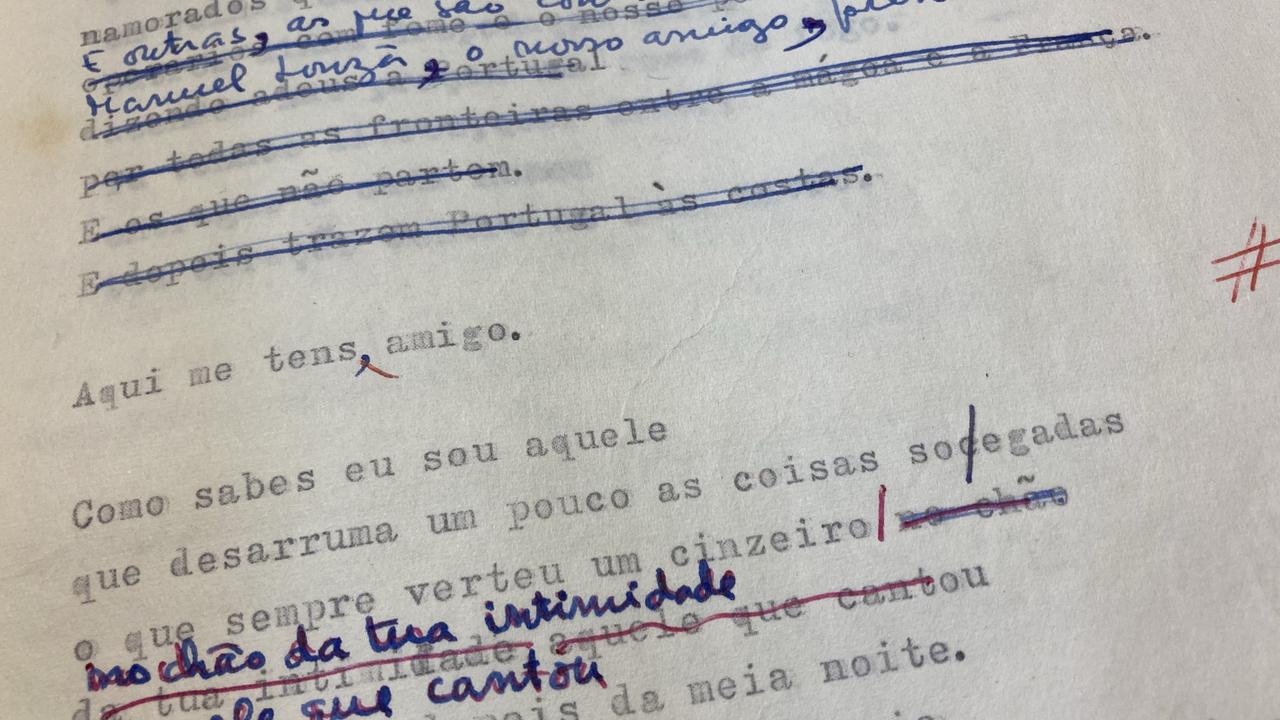 namorados
E outras, as que são
com fome e o nosso
Manuel Louzã, o nosso amigo,
dizendo adeus a Portugal
por todas as fronteiras entre a mágoa e a França.
E os que não partem.
E depois trazem Portugal às costas.
#
Aqui me tens, amigo.
Como sabes eu sou aquele
que desarruma um pouco as coisas socegadas
o que sempre verteu um cinzeiro no chão
no chão da tua intimidade
da tua intimidade aquele que cantou
que cantou
da meia noite.